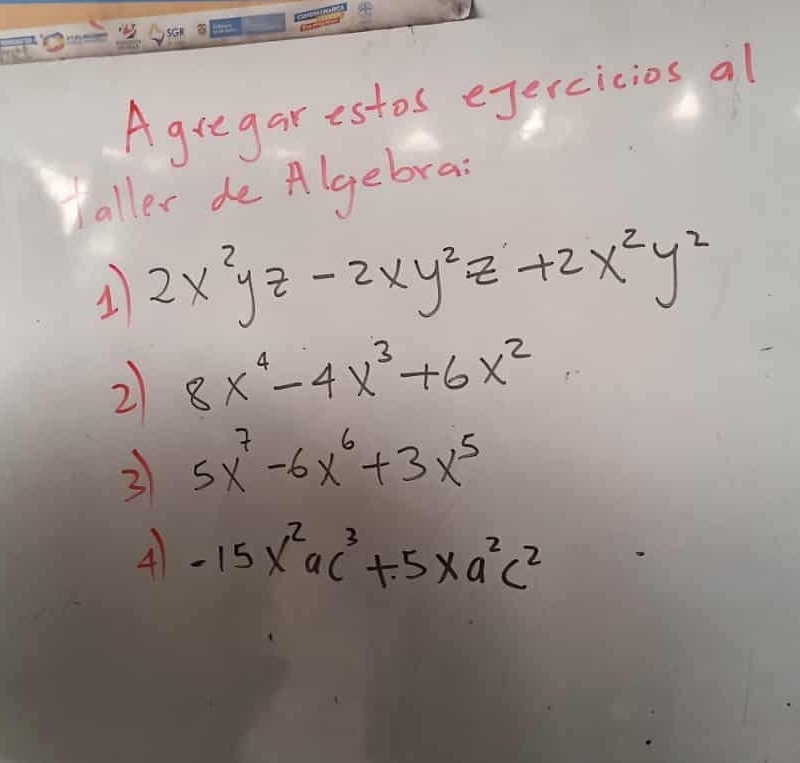 SGR
Agregar estos ejercicios al
taller de Algebra:
1) 2x²yz - 2xy²z + 2x²y²
2) 8x⁴ - 4x³ + 6x²
3) 5x⁷ - 6x⁶ + 3x⁵
4) -15x²ac³ + 5xa²c²